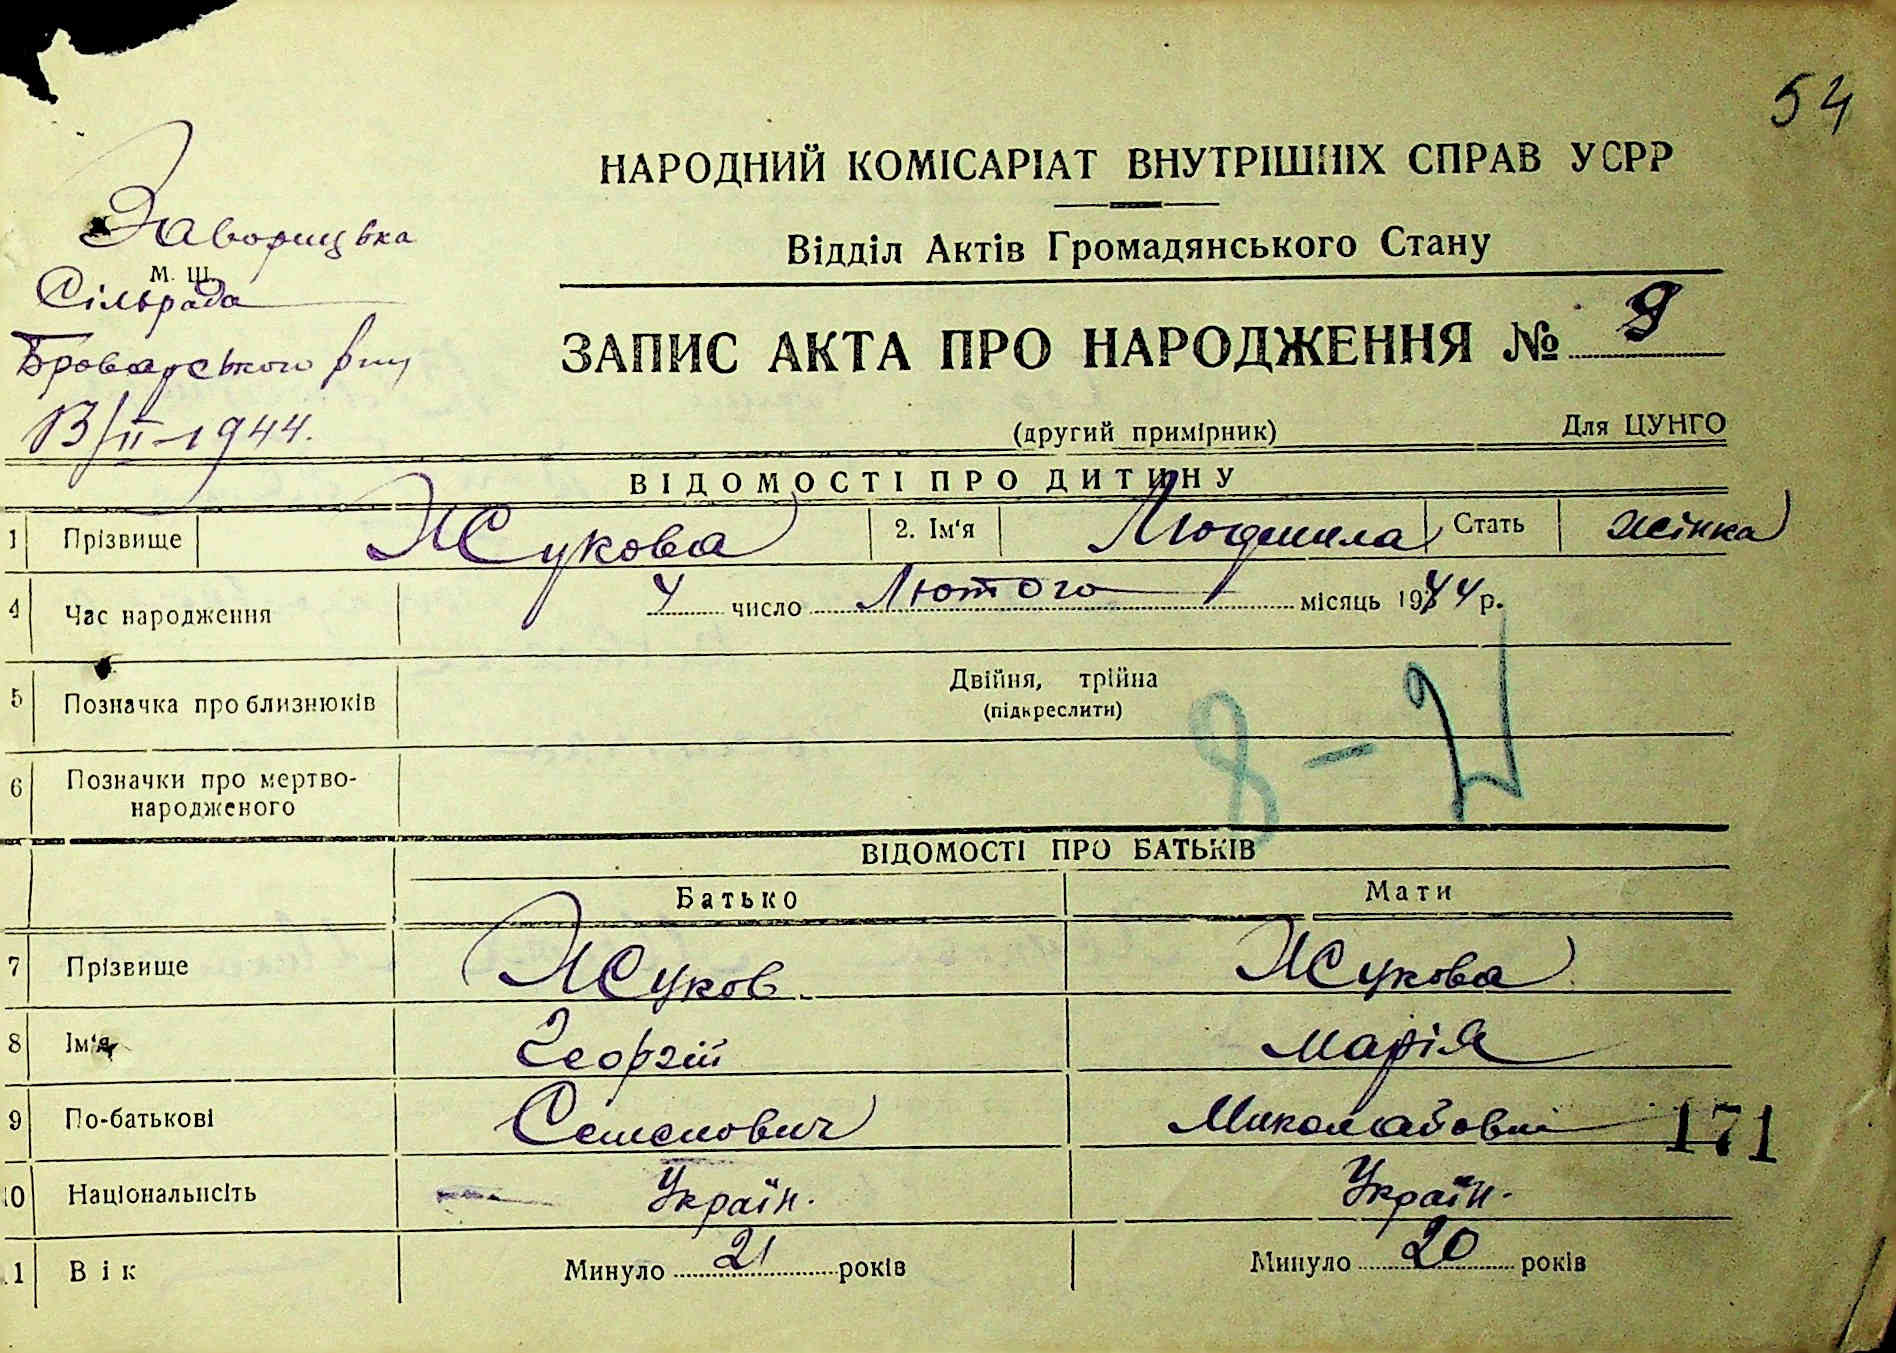 54
НАРОДНИЙ КОМІСАРІАТ ВНУТРІШНІХ СПРАВ УСРР
Відділ Актів Громадянського Стану
Заворицька
М. Ш.
Сільрада
Броварського р-ну
13/II-1944.
ЗАПИС АКТА ПРО НАРОДЖЕННЯ № 9
(другий примірник) Для ЦУНГО
ВІДОМОСТІ ПРО ДИТИНУ
1 Прізвище Жукова 2. Ім'я Людмила Стать жінка
4 Час народження 4 число Лютого місяць 1944 р.
5 Позначка про близнюків Двійня, трійна
(підкреслити)
6 Позначки про мертво-
народженого
8 -
ВІДОМОСТІ ПРО БАТЬКІВ
Батько Мати
7 Прізвище Жуков. Жукова
8 Ім'я Георгій Марія
9 По-батькові Семенович Миколаївни 171
10 Національність Україн. Україн.
11 Вік Минуло 21 років Минуло 20 років